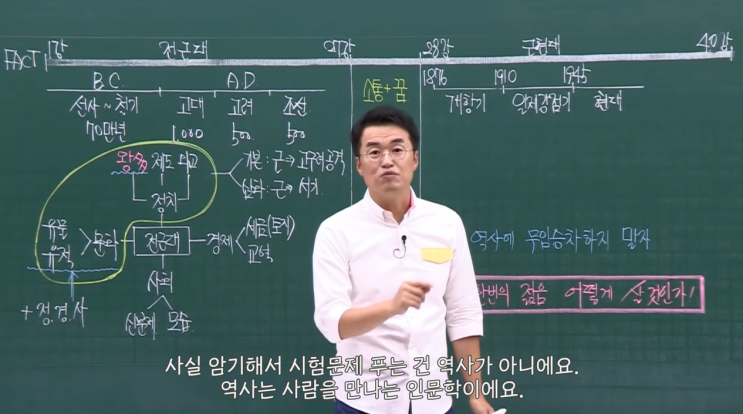 FACT 1강 전근대 27강 28강 근현대 40강
B.C. A.D 소통+꿈 1876 1910 1945
선사~철기 고대 고려 조선 개항기 일제강점기 현대
70만년 1,000 500 500
왕 제도 외교
기본: 근⇒고구려 공격
심화: 근⇒서기
정치
유물
유적
문화 전근대 경제
세금(토지)
교역
사회
+정.경.사
신분제 모습
역사에 무임승차하지 말자
한번의 젊음 어떻게 살것인가!
사실 암기해서 시험문제 푸는 건 역사가 아니에요.
역사는 사람을 만나는 인문학이에요.